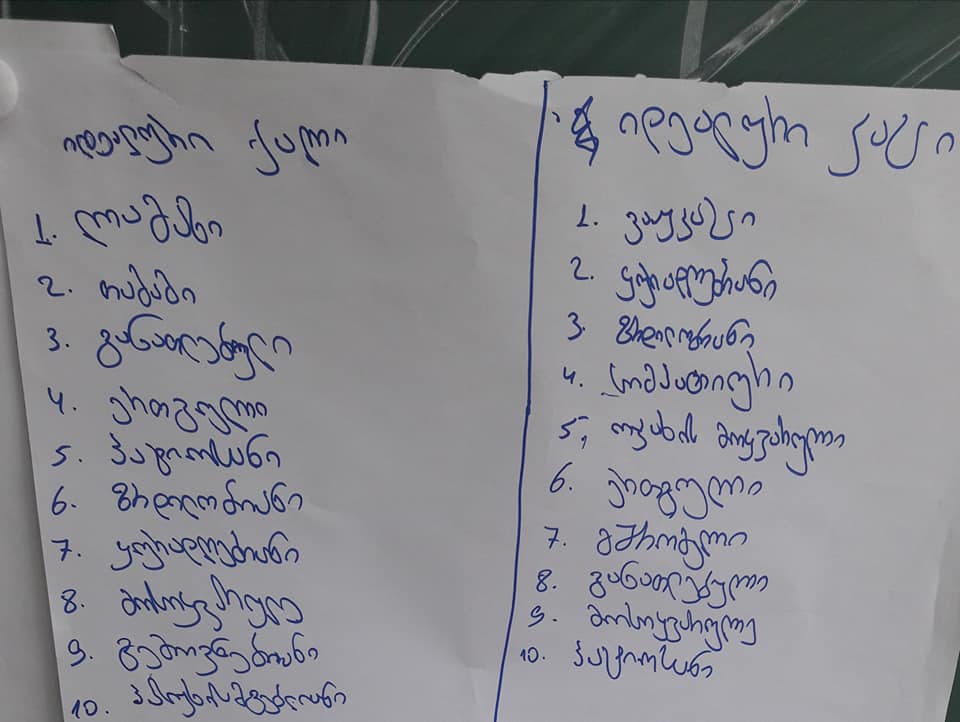 იდეალური ქალი
1. ლამაზი
2. თბილი
3. განათლებული
4. ერთგული
5. პატიოსანი
6. ზრდილობიანი
7. ყურადღებიანი
8. მოსიყვარულე
9. გემოვნებიანი
10. პასუხისმგებლიანი
იდეალური კაცი
1. ვაჟკაცი
2. ყურადღებიანი
3. ზრდილობიანი
4. სიმპათიური
5. ოჯახის მოყვარული
6. ერთგული
7. მშრომელი
8. განათლებული
9. მოსიყვარულე
10. პატიოსანი